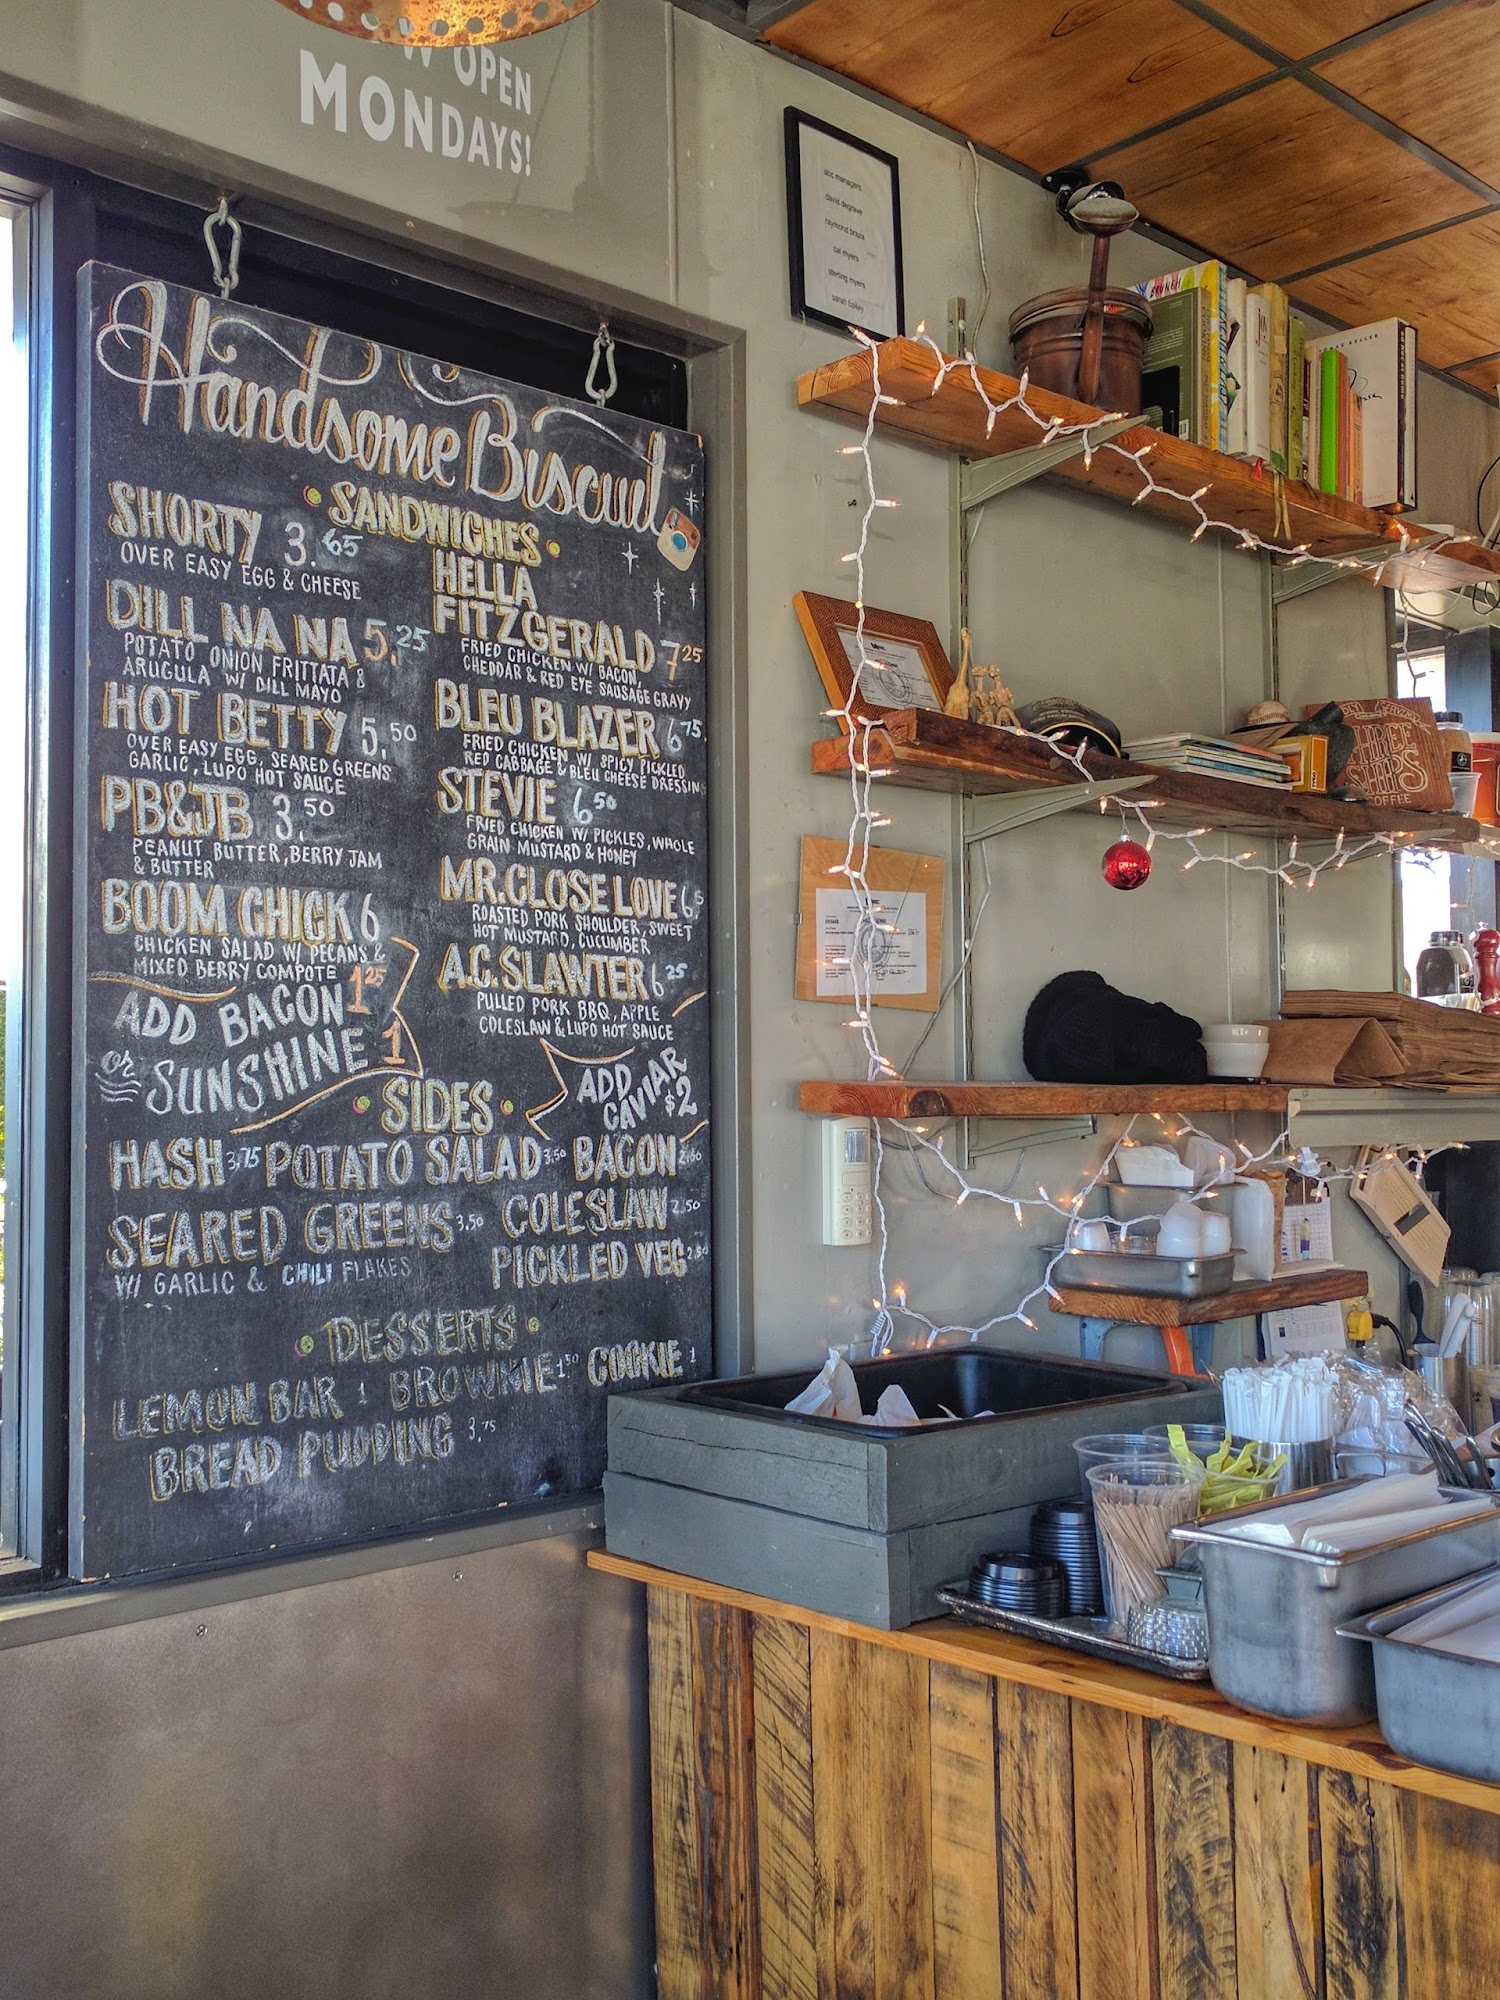 OPEN
MONDAYS!
Handsome Biscuit
SANDWICHES
SHORTY 3.65
OVER EASY EGG & CHEESE
DILL NA NA 5.25
POTATO ONION FRITTATA &
ARUGULA W/ DILL MAYO
HOT BETTY 5.50
OVER EASY EGG, SEARED GREENS
GARLIC, LUPO HOT SAUCE
PB&JB 3.50
PEANUT BUTTER, BERRY JAM
& BUTTER
BOOM CHICK 6
CHICKEN SALAD W/ PECANS &
MIXED BERRY COMPOTE
ADD BACON 1.25
or SUNSHINE 1
HELLA
FITZGERALD 7.25
FRIED CHICKEN W/ BACON,
CHEDDAR & RED EYE SAUSAGE GRAVY
BLEU BLAZER 6.75
FRIED CHICKEN W/ SPICY PICKLED
RED CABBAGE & BLEU CHEESE DRESSIN
STEVIE 6.50
FRIED CHICKEN W/ PICKLES, WHOLE
GRAIN MUSTARD & HONEY
MR. CLOSE LOVE 6.5
ROASTED PORK SHOULDER, SWEET
HOT MUSTARD, CUCUMBER
A.C. SLAWTER 6.25
PULLED PORK BBQ, APPLE
COLESLAW & LUPO HOT SAUCE
ADD
CAVIAR
$2
SIDES
HASH 3.75 POTATO SALAD 3.50 BACON
SEARED GREENS 3.50
W/ GARLIC & CHILI FLAKES
COLESLAW 2.50
PICKLED VEG
DESSERTS
LEMON BAR 1 BROWNIE 1.50 COOKIE 1
BREAD PUDDING 3.75
abc managers
david degrave
raymond braza
cal myers
sterling myers
sarah bailey
BRUNCH
THREE
SHIPS
COFFEE